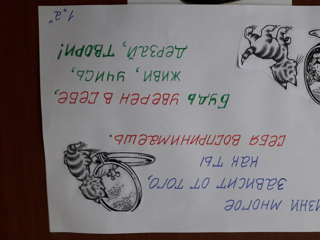 ИЗНИ МНОГОЕ
ЗАВИСИТ ОТ ТОГО,
КАК ТЫ
СЕБЯ ВОСПРИНИМАЕШЬ.
БУДЬ УВЕРЕН В СЕБЕ,
ЖИВИ, УЧИСЬ,
ДЕРЗАЙ, ТВОРИ!
1 „а"